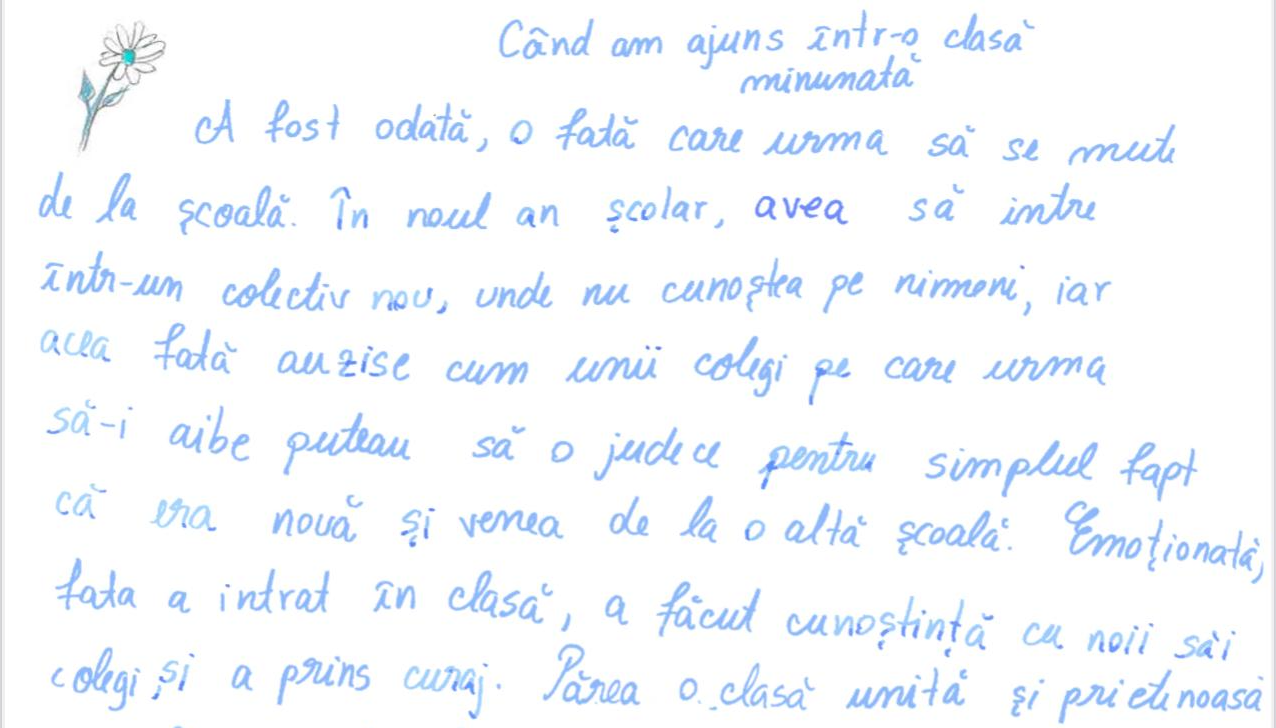 Când am ajuns într-o clasă
minunată
A fost odată, o fată care urma să se mute
de la școală. În noul an școlar, avea să intre
într-un colectiv nou, unde nu cunoștea pe nimeni, iar
acea fată auzise cum unii colegi pe care urma
să-i aibe puteau să o judece pentru simplul fapt
că era nouă și venea de la o altă școală. Emoționată,
fata a intrat în clasă, a făcut cunoștință cu noii săi
colegi și a prins curaj. Părea o clasă unită și prietenoasă